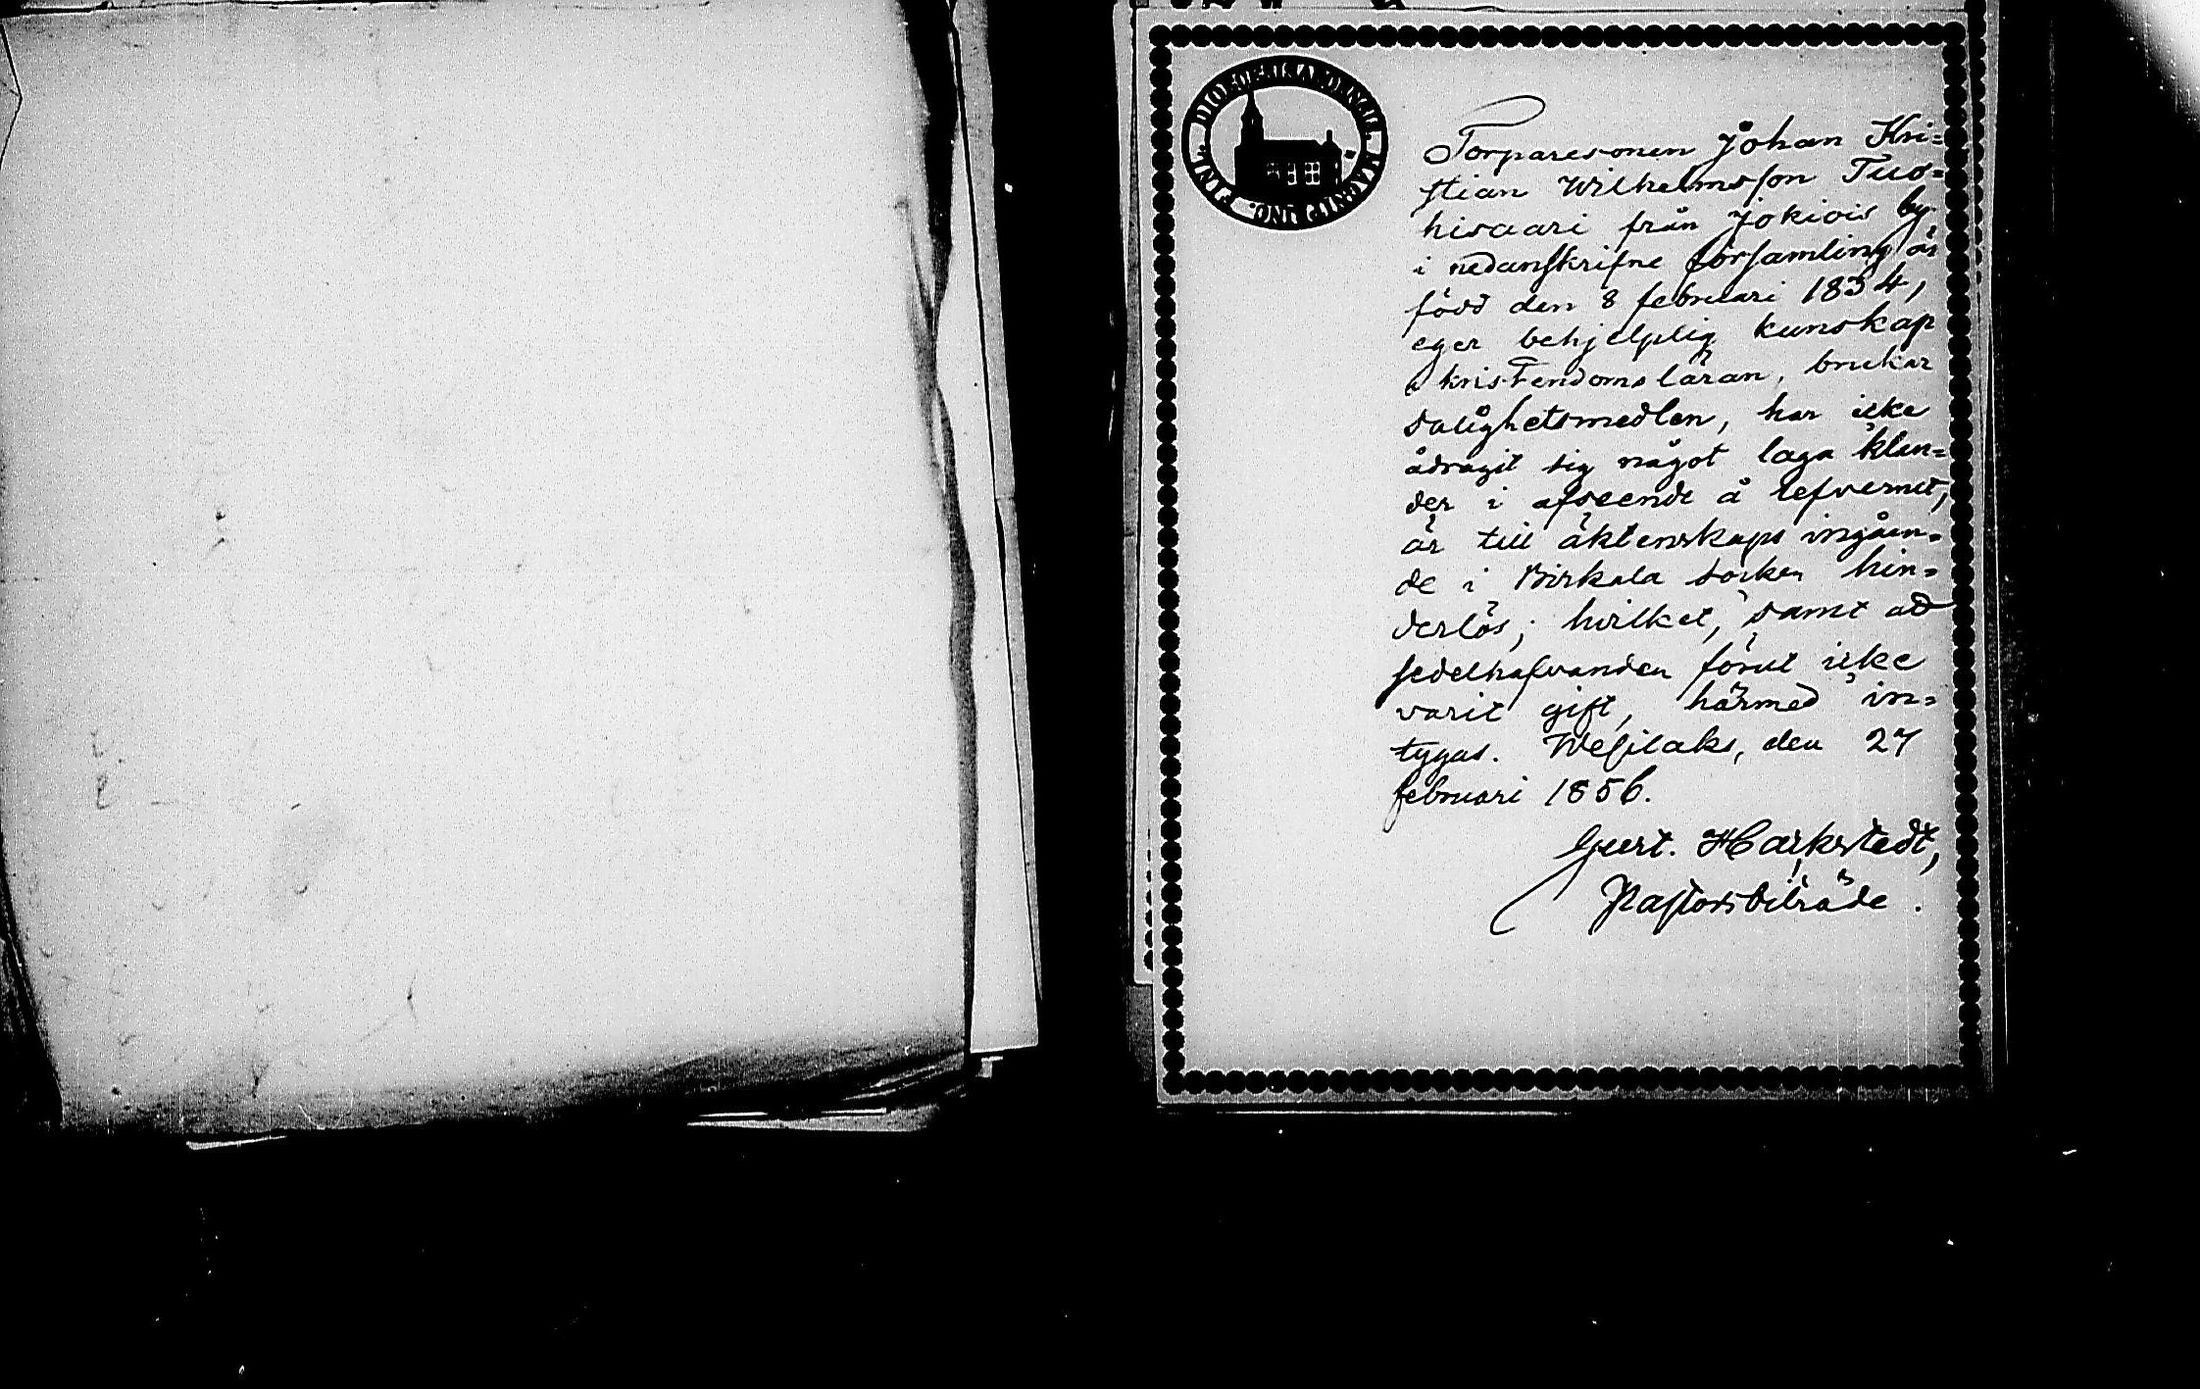 Torparesonen Johan Kri=
stian Wilhelmsson Tuo=
hisaari från Jokiois by
i nedanskrifne församling är
född den 8 februari 1834,
eger behjelplig kunskap
i kristendomsläran, brukar
salighetsmedlen, har icke
ådragit sig något laga klan=
der i afseende å lefvernet,
är till äktenskaps ingåen=
de i Birkala socken hin=
derlös; hvilket, samt att
sedelhafvanden förut icke
varit gift, härmed in=
tygas. Wesilaks, den 27
februari 1856.
Gust. Harkstedt,
Pastorsbiträde.